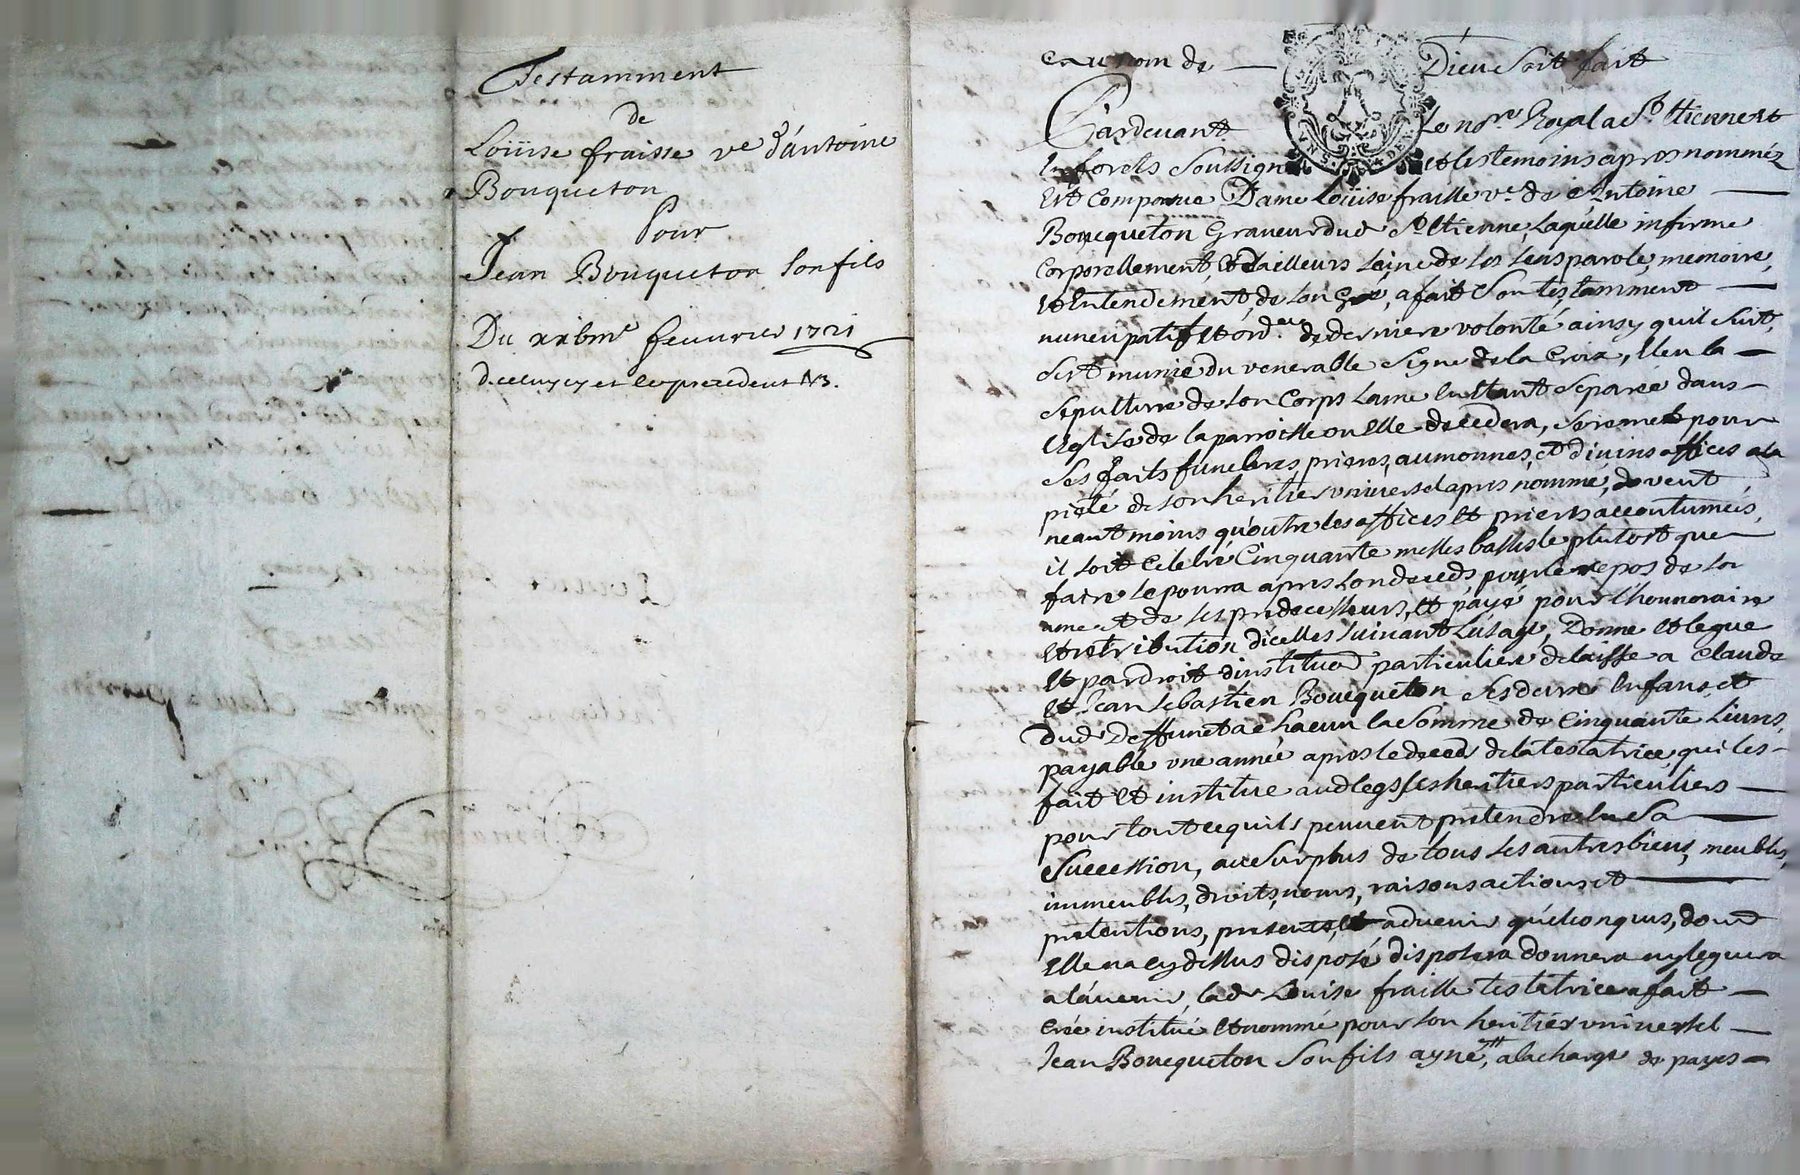 Testamment
de
Loüise fraisse ve d'antoine
Bouqueton
Pour
Jean Bouqueton son fils
Du xxbme feuurier 1721
au nom de Dieu soit fait
Pardevant Le no.re Royal a St. Etienne et
en forets soussigné et les temoins apres nommez
Est Comparue Dame Loüise fraisse ve. de Antoine
Boucqueton Graueur dud St. Etienne, Laquelle infirme
Corporellement, Et d'ailleurs saine de ses sens parole, memoire,
Et Entendement, de son Gré, a fait son testamment
nuncupatif et ord.ce de derniere volonté ainsy quil suit,
s'est munie du venerable signe de la Croix, Eleu la
sepulture de son Corps Lame En Etant separée dans
L'eglise de la parroisse ou Elle decedera, se remet pour
ses faits funebres, prieres, aumonnes, et divins offices a la
pieté de son heritier universel apres nommé, devent
neantmoins qu'outre les offices et prieres accoutumées,
il soit Celebré Cinquante messes basses le plutost que
faire se pourra apres son deceds pour le repos de son
ame et de ses predecesseurs, et payé pour l'honnoraire
Et retribution d'icelles suivant L'usage, Donne et legue
Et par droit d'institu[on] particuliere delaisse a Claude
Et Jean Sebastien Boucqueton ses deux Enfans, et
dud. Deffunct a chacun la somme de Cinquante Livres,
payable une année apres le deced de la testatrice, qui les
fait Et institue aud legs ses heritiers particuliers
pour tout ce quils peuvent pretendre en sa
succession, au surplus de tous ses autres biens, meubles,
immeubles, droits, noms, raisons actions et
pretentions, presents, Et advenir quelconques, dont
Elle na cy dessus disposé disposera donnera ny leguera
a l'avenir, lade Louise fraisse testatrice a fait
crée institué Et nommé pour son heritier universel
Jean Boucqueton son fils ayné, a la charge de payer